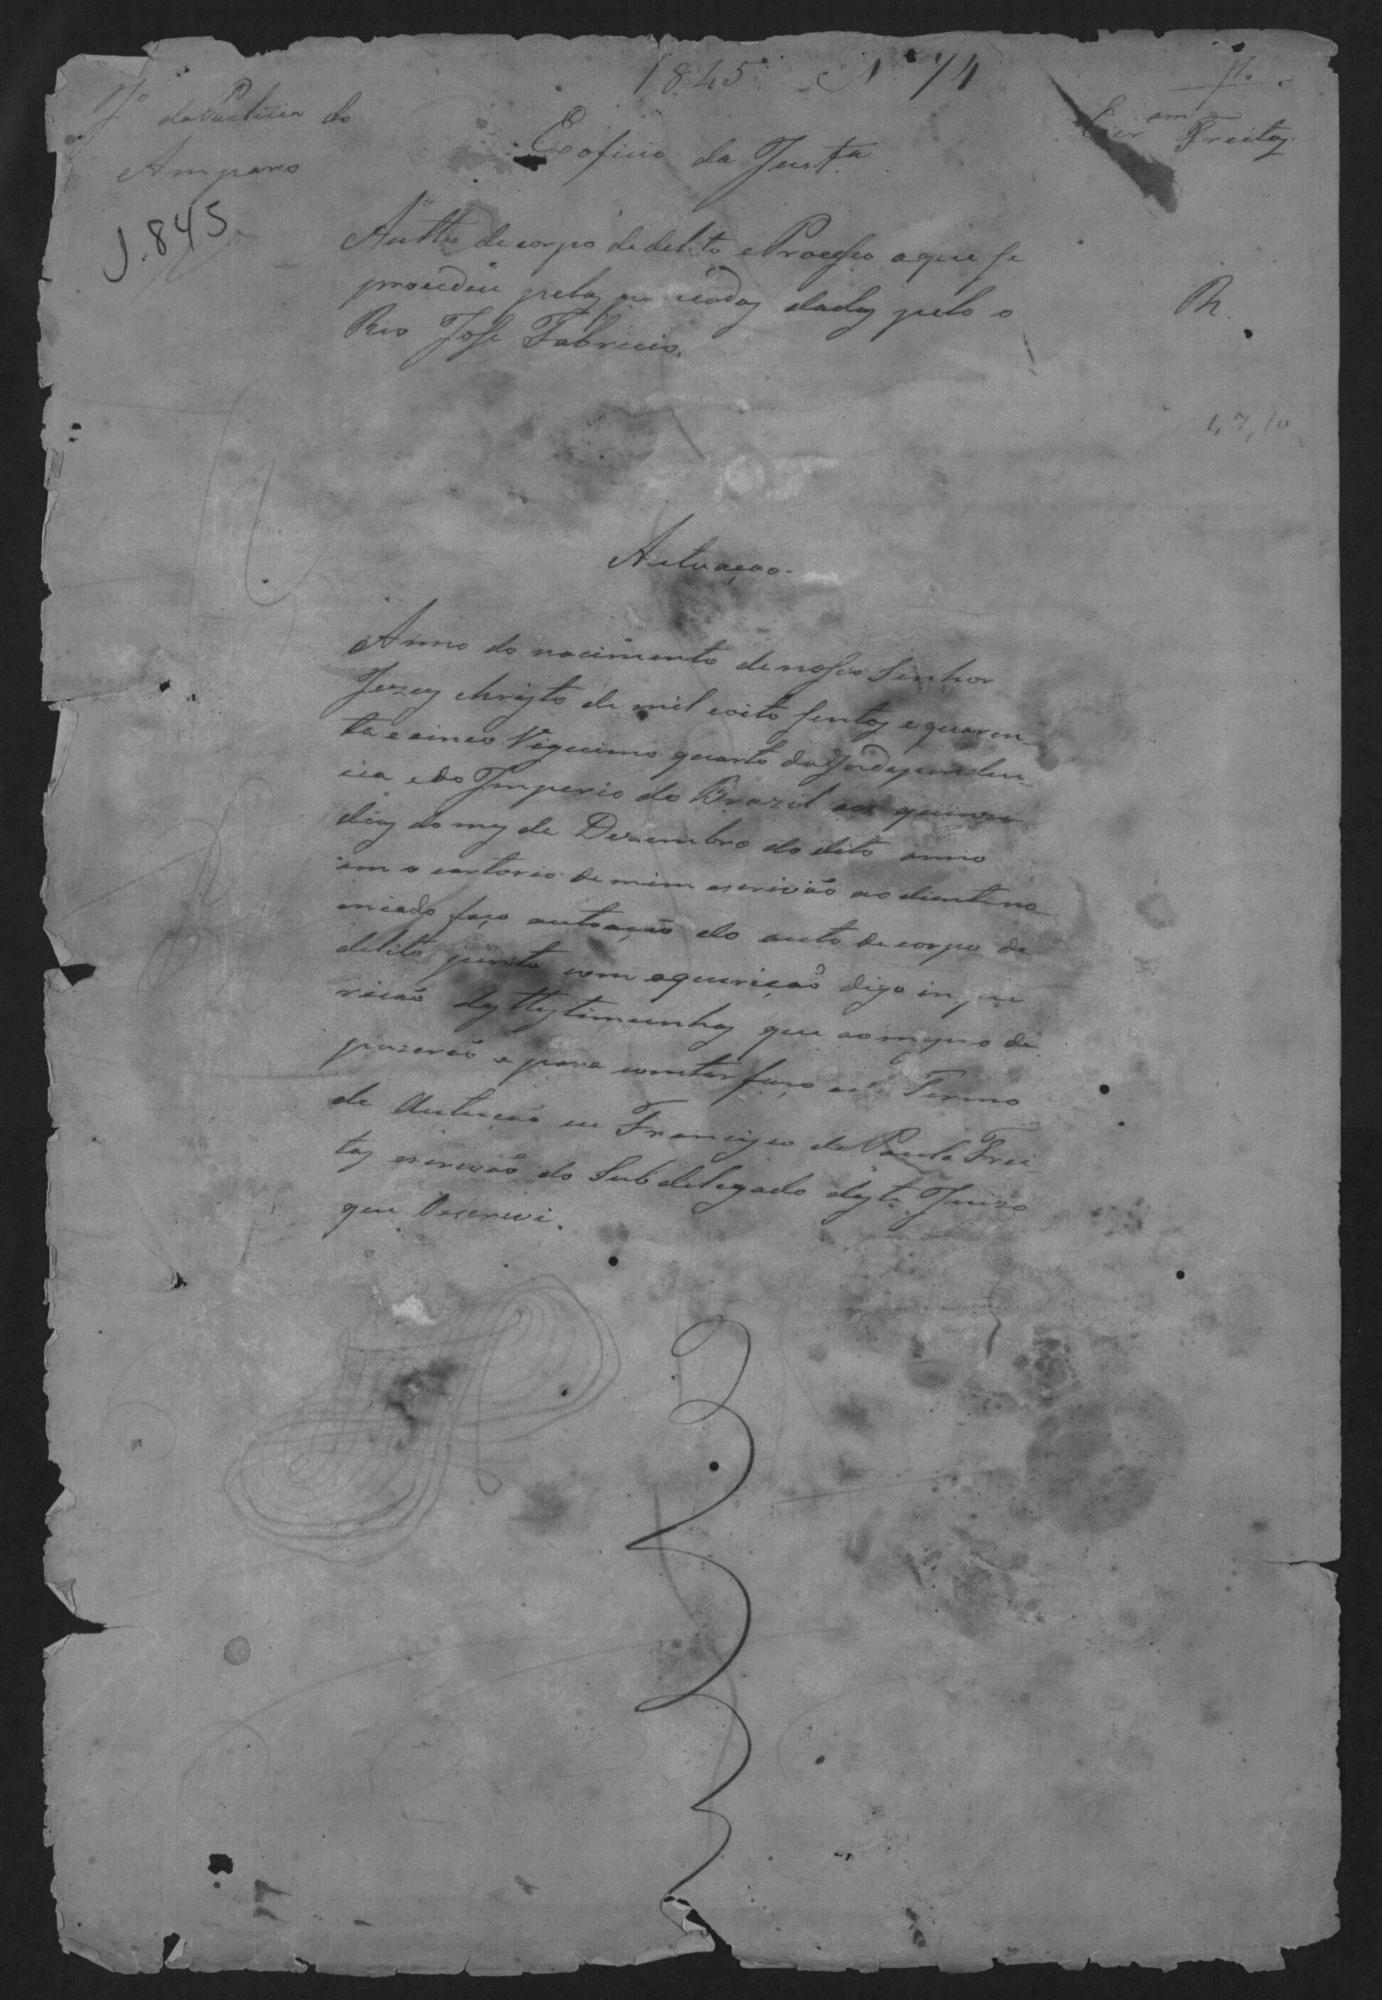 1845 N 74
Jº da Policia do
Amparo
1.845
fl.
Escram Freitas
Exoficio da Justª
Autto de corpo de delito e Processo aque se
procedeu pelas pancadas dadas pelo o
Reo Jose Fabricio.
R.
Autuaçao.
Anno do nacimento de nosso Senhor
Jezus christo de mil eoito sentos e quaren-
ta e cinco Vigecimo quarto da Independen-
cia e do Imperio do Brazil aos quinze
dias do mes de Dezembro do dito anno
em o cartorio de mim escrivão ao diente no
miado faço autoação do auto de corpo de
delito junto com aquerição digo inque
rição das ttestimunhas que ao mesmo de
pozerão e para constar faço este Termo
de Autuação eu Francisco de Paula Frei-
tas escrivão do Subdelegado deste Juizo
que Oescrevi.